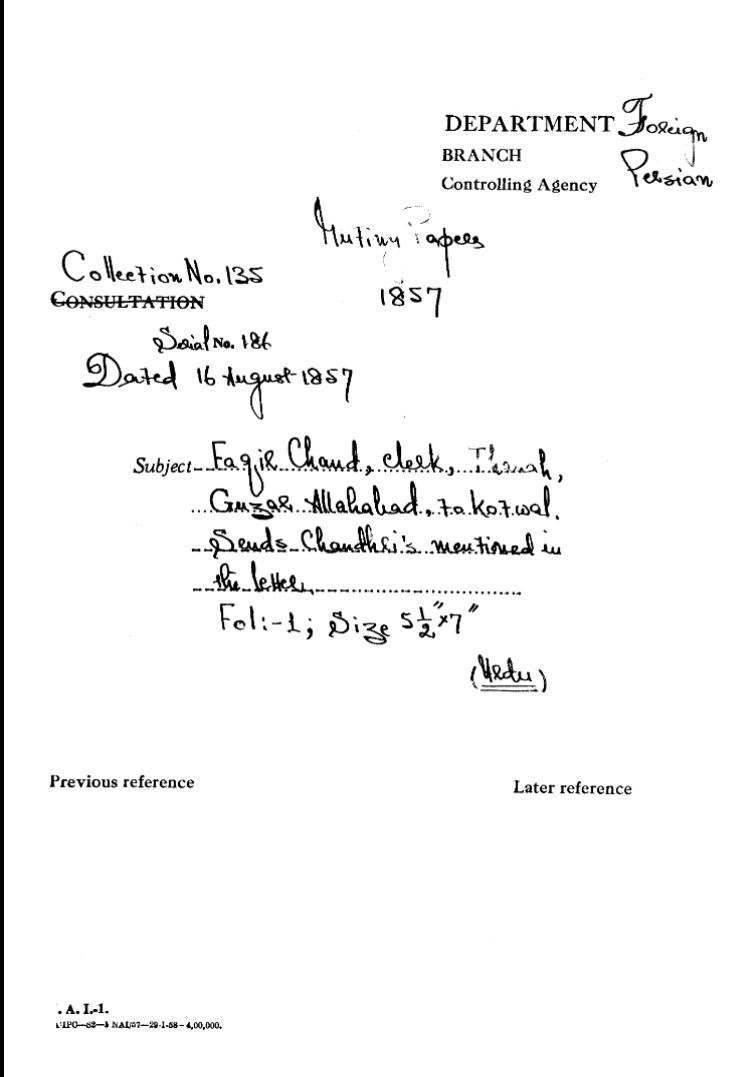 DEPARTMENT Foreign
BRANCH
Controlling Agency Persian
Mutiny Papers
1857
Collection No. 135
CONSULTATION
Serial No. 186
Dated 16 August 1857
Subject Faqir Chand, clerk, Thanah,
Guzar Allahabad, to Kotwal.
Sends Chaudhri's mentioned in
the letter.
Fol:-1; Size 5½"×7"
(Urdu)
Previous reference
Later reference
. A. I.-1.
NAI/57—29-1-58—4,00,000.